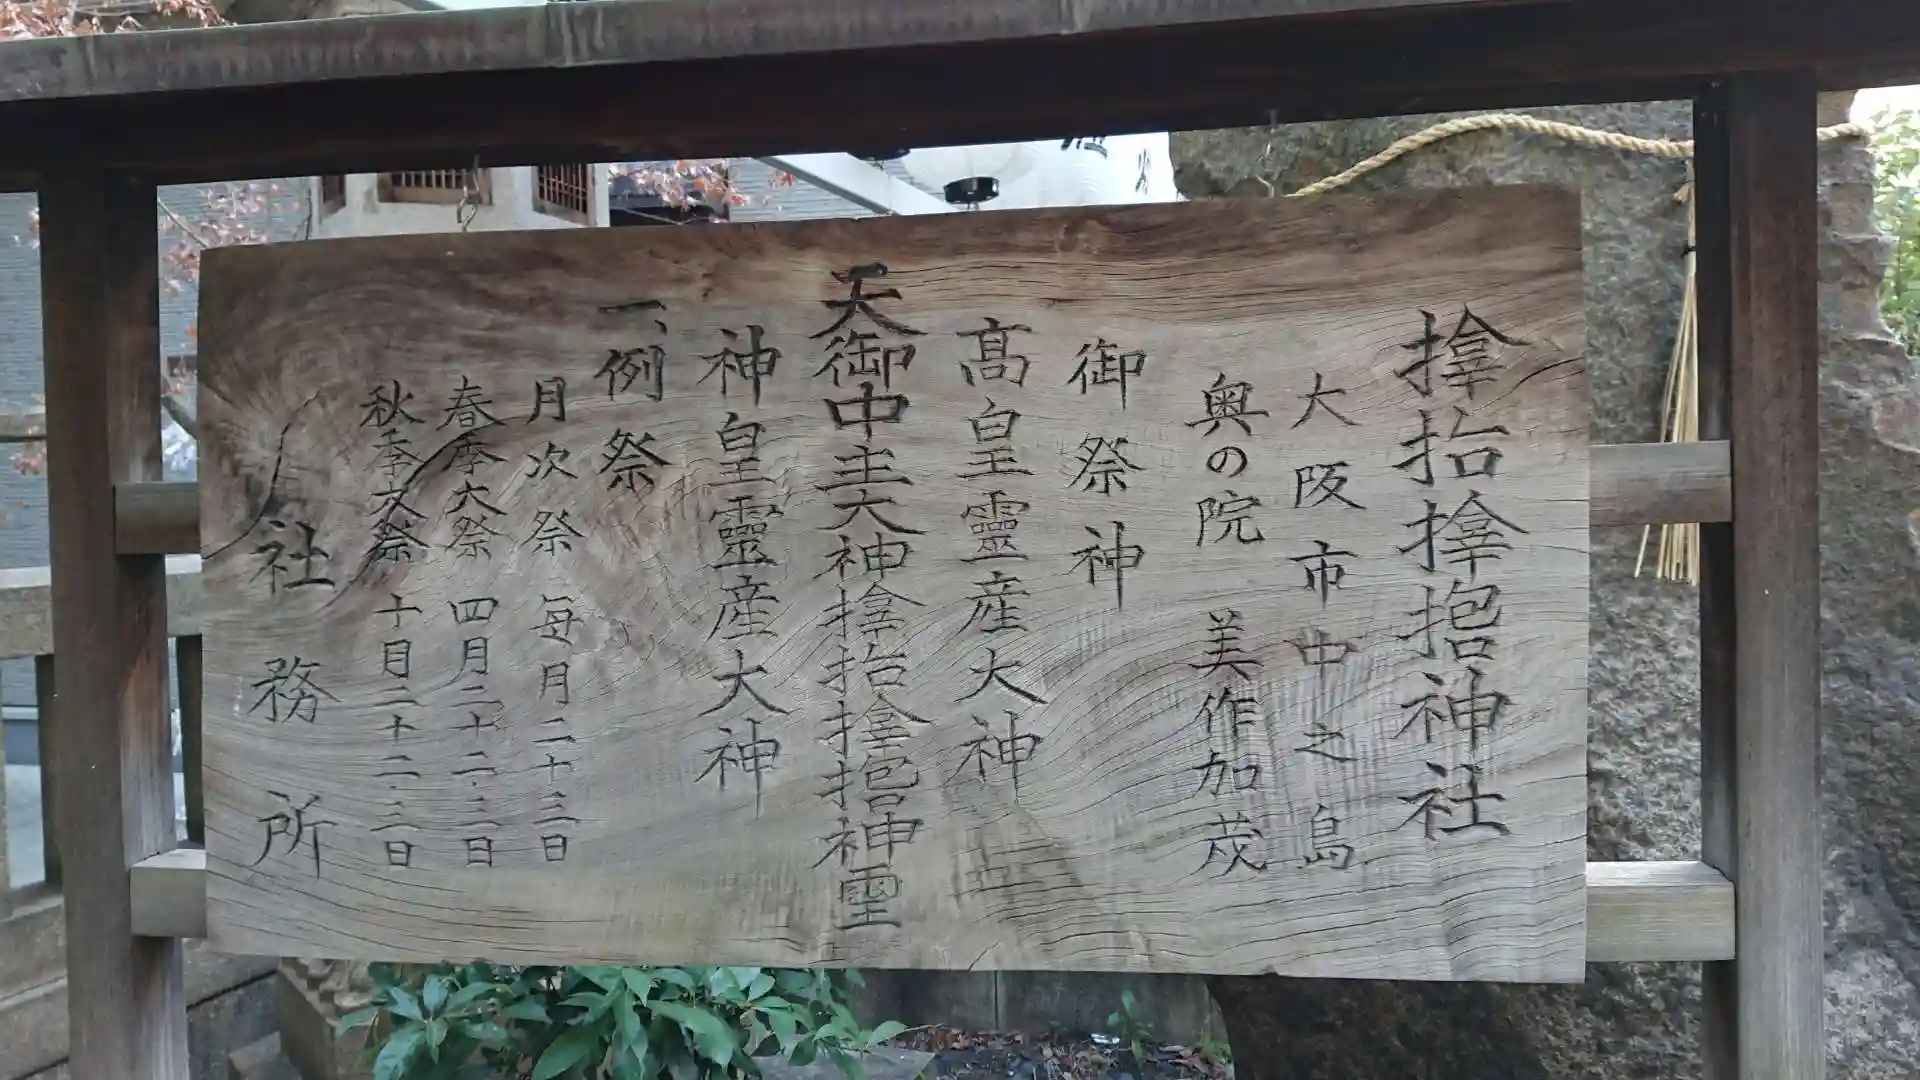 𪮷抬𪮷𪮇神社
大阪市中之島
奥の院　美作加茂
御祭神
髙皇靈産大神
天御中主大神𪮷抬𪮷𪮇神霊
神皇靈産大神
一、例祭
月次祭　毎月二十三日
春季大祭　四月二十二・三日
秋季大祭　十月二十二・三日
社務所